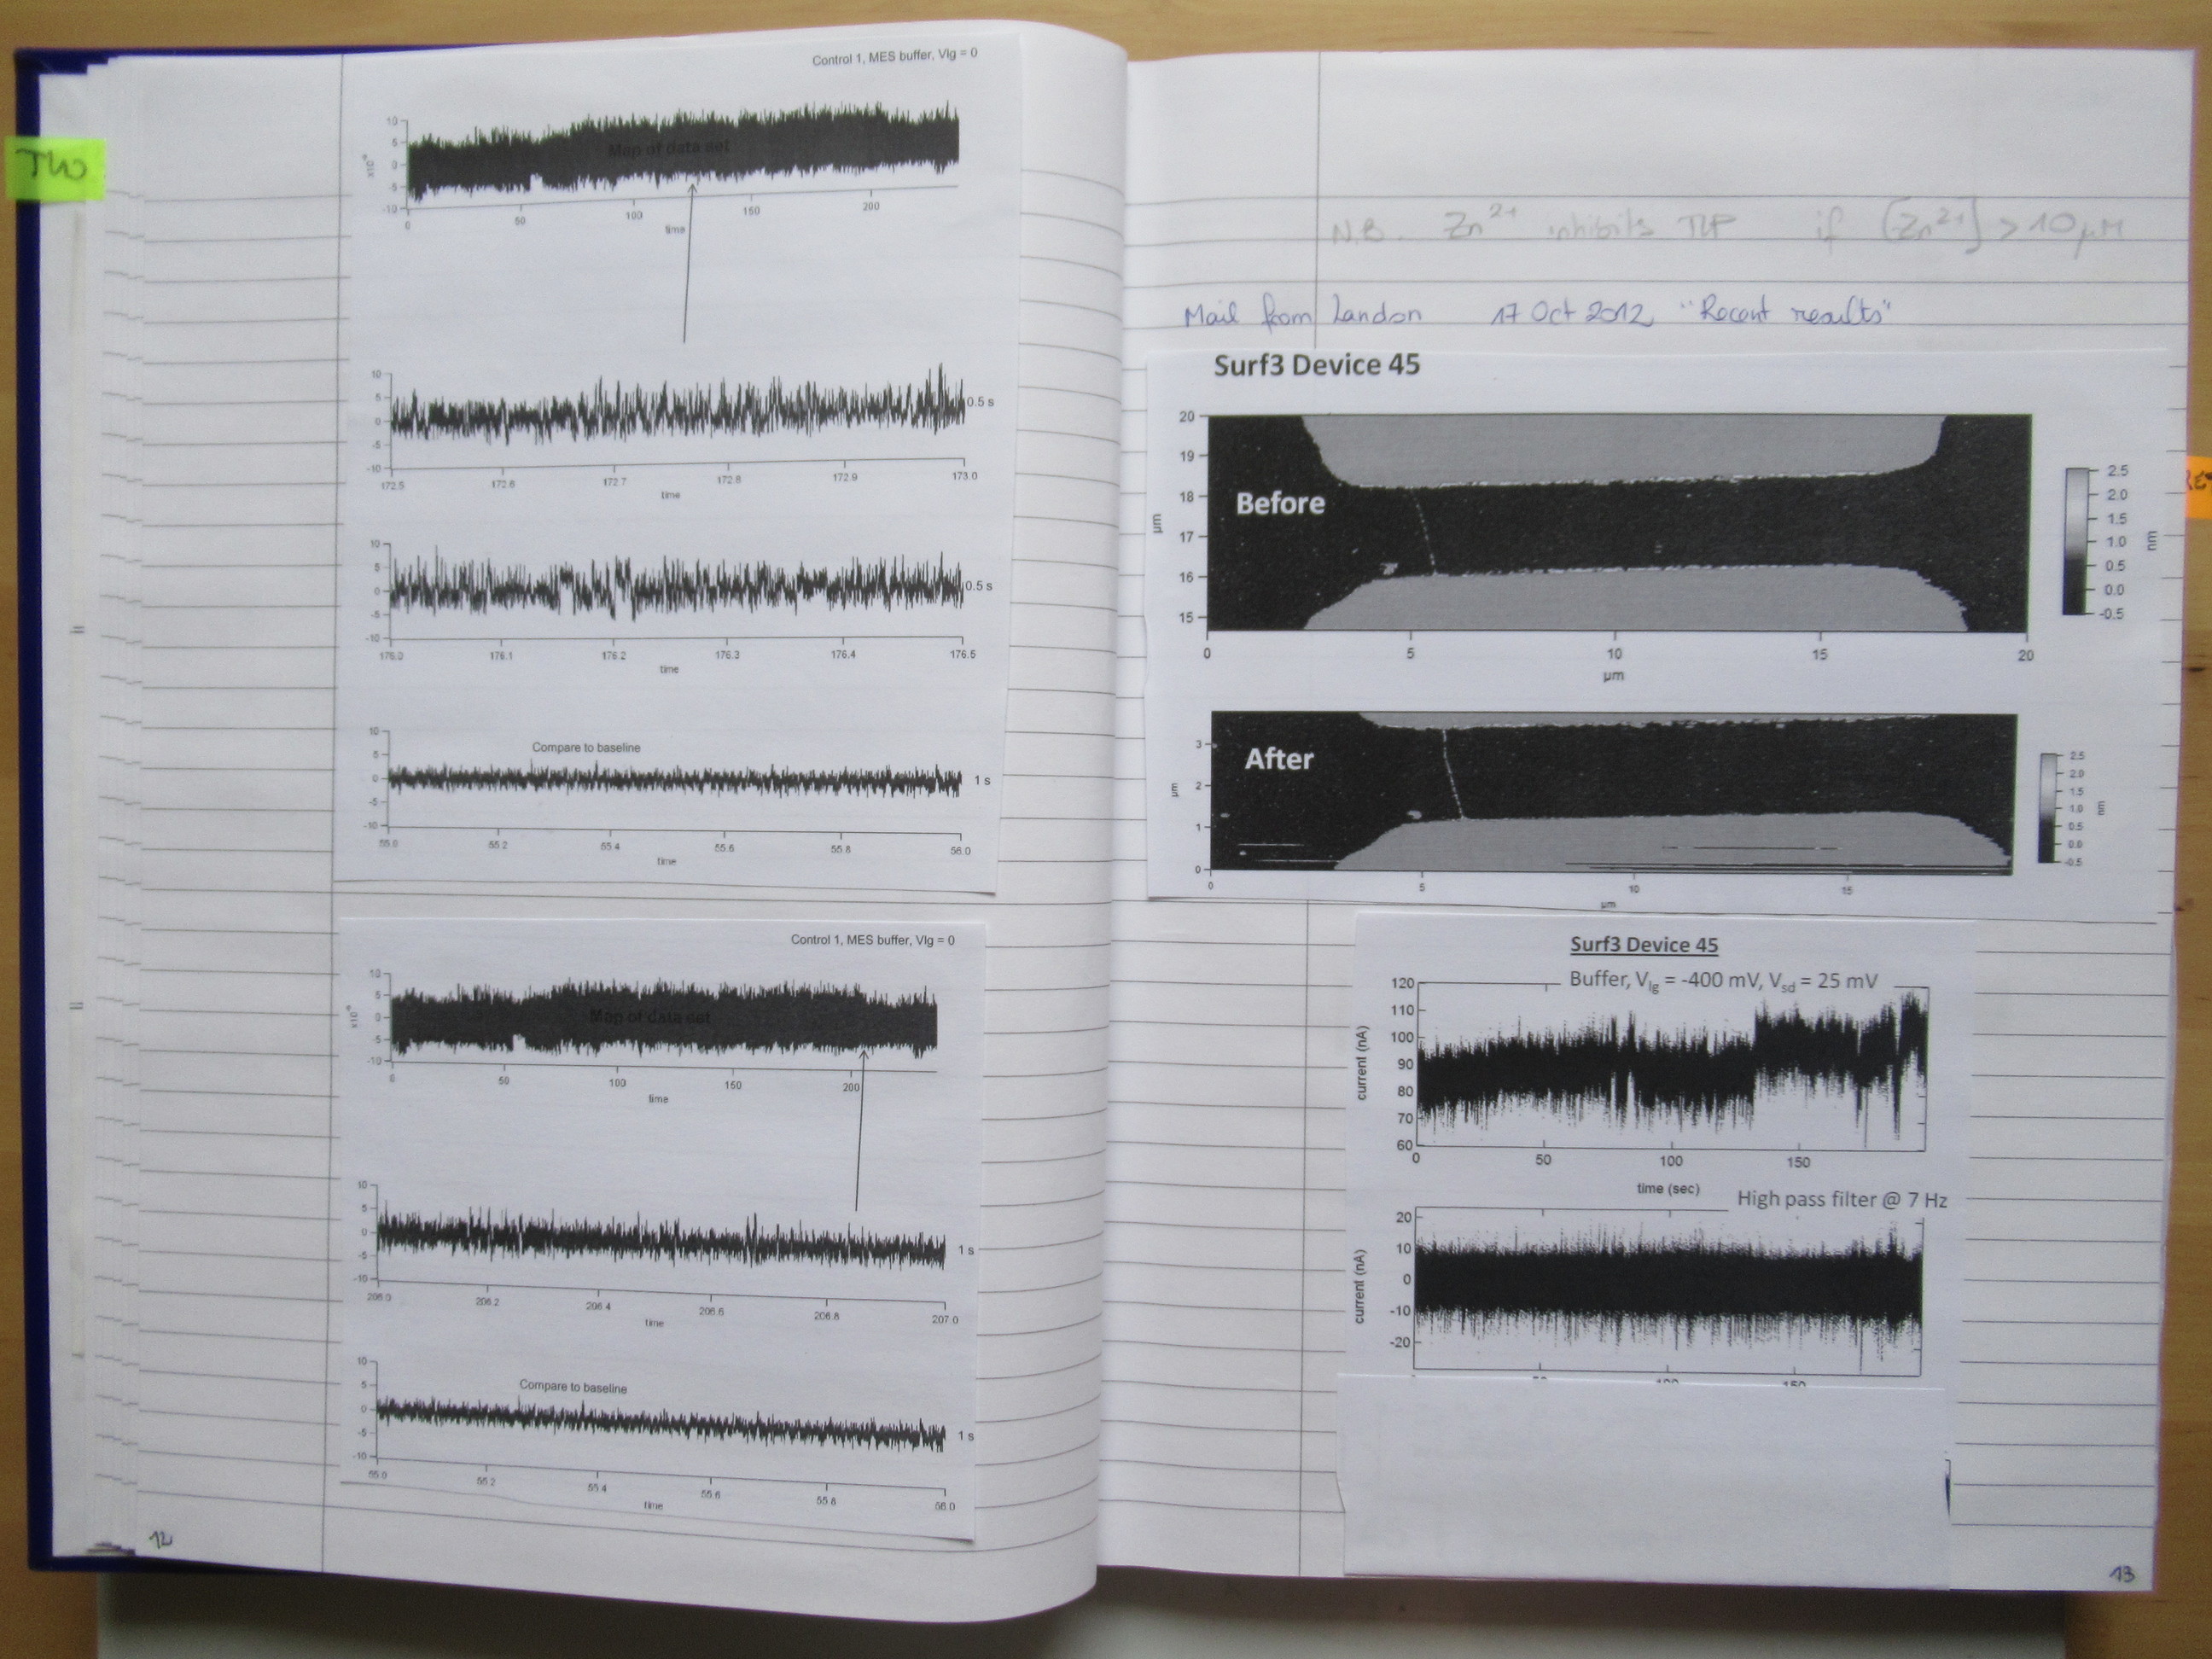 TWO
Control 1, MES buffer, Vlg = 0
10
5
0
-5
-10
Map of data set
0 50 100 150 200
time
10
5
0
-5
-10
0.5 s
172.5 172.6 172.7 172.8 172.9 173.0
time
10
5
0
-5
-10
0.5 s
176.0 176.1 176.2 176.3 176.4 176.5
time
10
5
0
-5
-10
Compare to baseline
1 s
55.0 55.2 55.4 55.6 55.8 56.0
time
Control 1, MES buffer, Vlg = 0
10
5
0
-5
-10
Map of data set
0 50 100 150 200
time
10
5
0
-5
-10
1 s
206.0 206.2 206.4 206.6 206.8 207.0
time
10
5
0
-5
-10
Compare to baseline
1 s
55.0 55.2 55.4 55.6 55.8 56.0
time
12
N.B. Zn²⁺ inhibits TLP if [Zn²⁺] > 10 µM
Mail from Landon 17 Oct 2012 "Recent results"
Surf3 Device 45
20
19
18
17
16
15
µm
Before
0 5 10 15 20
µm
2.5
2.0
1.5
1.0
0.5
0.0
-0.5
nm
3
2
1
0
µm
After
0 5 10 15
µm
2.5
2.0
1.5
1.0
0.5
0.0
-0.5
nm
Surf3 Device 45
Buffer, Vlg = -400 mV, Vsd = 25 mV
120
110
100
90
80
70
60
current (nA)
0 50 100 150
time (sec)
High pass filter @ 7 Hz
20
10
0
-10
-20
current (nA)
13